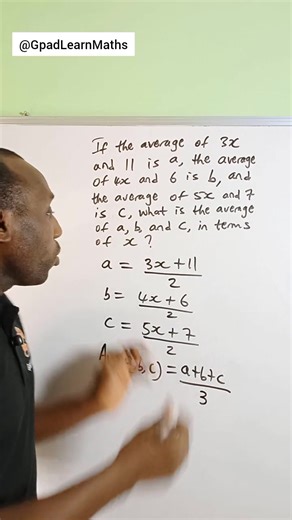 @GpadLearnMaths
If the average of 3x
and 11 is a, the average
of 4x and 6 is b, and
the average of 5x and 7
is c, what is the average
of a, b, and c, in terms
of x?
a = 3x+11
2
b = 4x+6
2
c = 5x+7
2
A b,c) = a+b+c
3